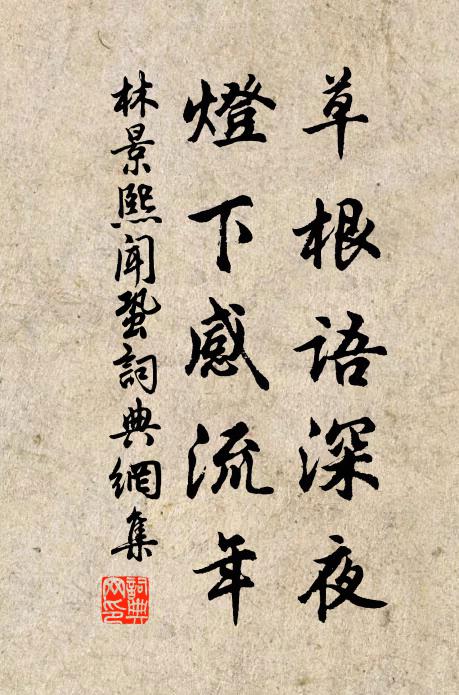 草根語深夜
燈下感流年
林景熙聞蛩詞典網集
詞典網印